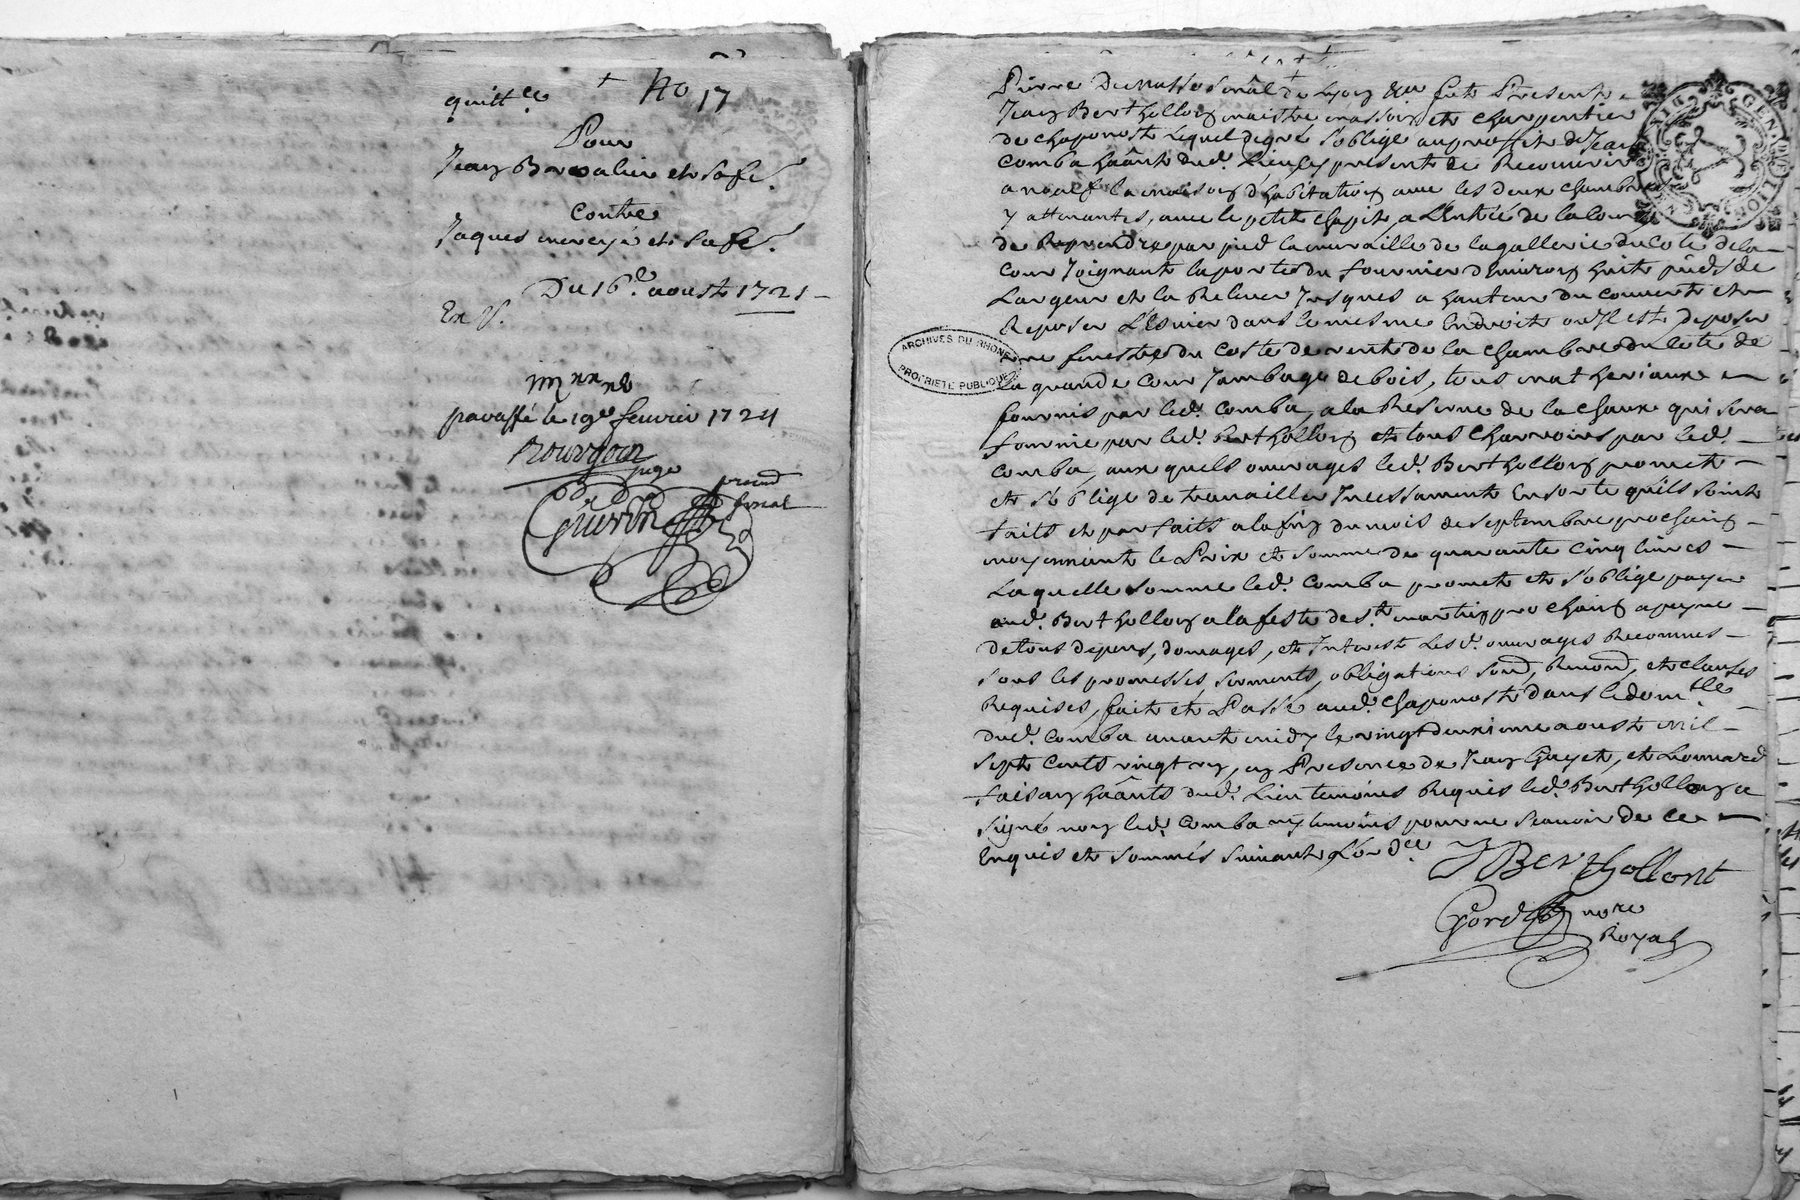 quitt.ce + No 17
Pour
Jean Brevalier et sa fe.
Contre
Jaques mercyé et sa fe.
Du 16.e aoust 1721 -
paraffé le 19e feurier 1724
Bourgoin
juge
procur
fiscal
Guerin
Jean Berthollon maistre masson et charpentier
de chaponost lequel degré s'oblige au proffit de Jean
Comba hãânt dud. Lieu cy present de Recouurir
a neuf la maison d'habitation auec les deux chambres
y attenantes, auec le petit chapit a L'entrée de la Cour
de Reprendre par pied la muraille de la gallerie du Coté de la
Cour Joignant la porte du fournier d'Enuiron huit pieds de
Largeur et la Releuer Jusques a hauteur du couuert et
Reposer L'Esuier dans le mesme Endroit ou Il est, deposer
une fenestre du costé de vent de la chambre du Coté de
la grande Cour Jambage de bois, tous matheriaux
fournis par led. Comba, a la Reserue de la chaux qui sera
fournie par led. Berthollon et tous charrois par led.
Comba, aux quels ouurages led. Berthollon promet
et s'oblige de trauailler Incessament En sorte qu'ils soint
faits et parfaits a la fin du mois de septembre prochain
moyennant le Prix et somme de quarante cinq liures
Laquelle somme led. Comba promet et s'oblige payer
aud. Berthollon a la feste de st. martin prochain a peyne
de tous depens, domages, et Interest Les d. ouurages Reconnus
sous les promesses serments, obligations soud, Renond, et clauses
Requises, fait et Passé aud. Chaponost dans le dom.lle
dud. Comba auant midy le vingt deuxieme aoust mil
sept cents vingt un, en Presence de Jean Gayet, et Leonard
faisan hãânts dud. Lieu temoins Requis led. Berthollon a
signé non led. Comba ny temoins pour ne scauoir de ce
Enquis et sommés suiuant L'or d.ce
J Berthollont
nore
Royal
ARCHIVES DU RHONE
PROPRIETE PUBLIQUE
GEN. D. LION